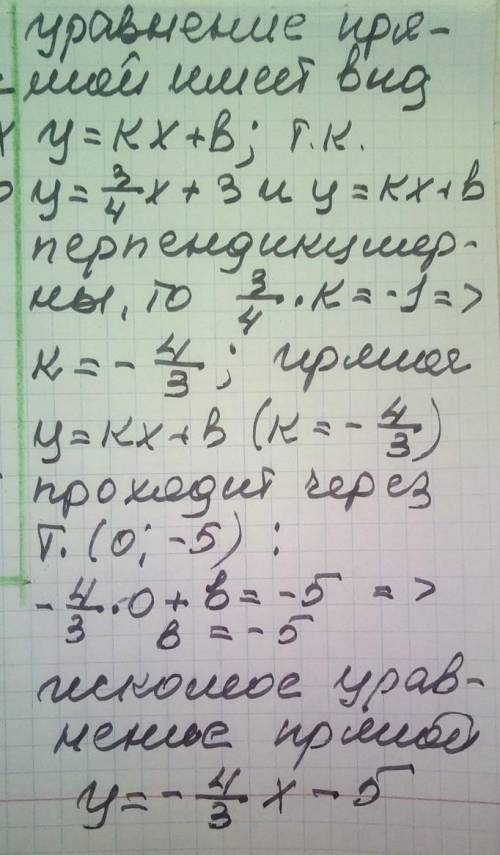 уравнение пря-
мой имеет вид
у = кх + в; т.к.
у = 3/4 х + 3 и у = кх + в
перпендикуляр-
ны, то 3/4 · к = -1 =>
к = - 4/3; прямая
у = кх + в (к = - 4/3)
проходит через
т. (0; -5) :
- 4/3 · 0 + в = -5 =>
в = -5
искомое урав-
нение прямой
у = - 4/3 х - 5